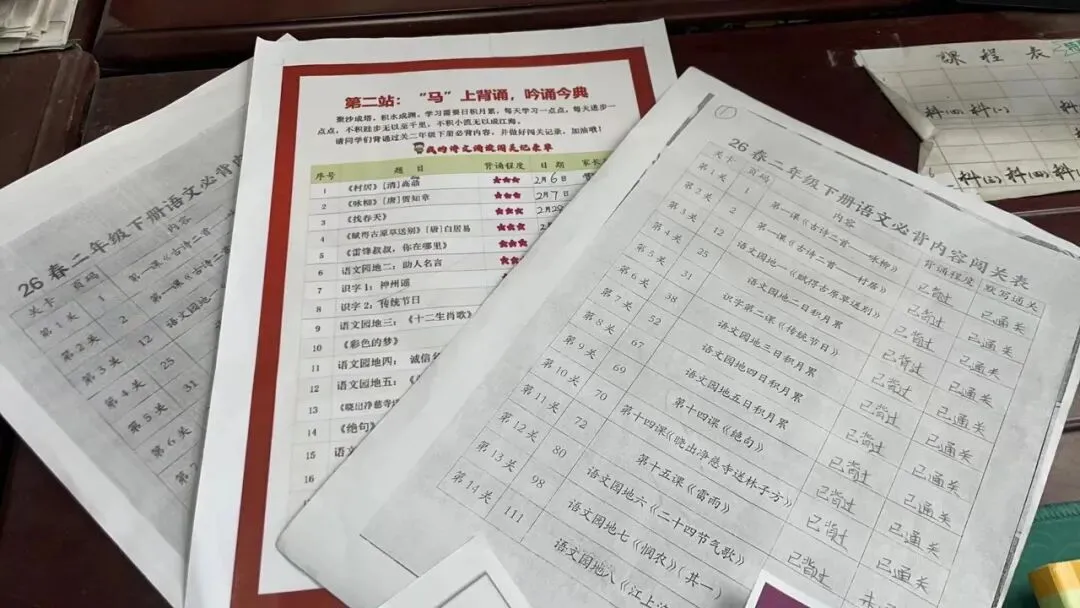 26春二年级下册语文必背内
关卡 页码 内容
第1关 1 第一课《古诗二首
第2关 2 第一课《古诗二首
第3关 12 语文园地一
第4关 25
第5关 31
第6关
第二站：“马”上背诵，吟诵今典
聚沙成塔，积水成渊，学习需要日积月累，每天学习一点点，每天进步一
点点，不积跬步无以至千里，不积小流无以成江海。
请同学们背诵过关二年级下册必背内容，并做好闯关记录，加油哦！
我的诗文诵读闯关纪录单
序号 题目 背诵程度 日期 家长
1 《村居》[清]高鼎 ★★★ 2月6日
2 《咏柳》[唐]贺知章 ★★★ 2月7日
3 《找春天》 ★★★
4 《赋得古原草送别》[唐]白居易 ★★★
5 《雷锋叔叔，你在哪里》 ★★★
6 语文园地二：助人名言
7 识字1：神州谣
8 识字2：传统节日
9 语文园地三：《十二生肖歌》
10 《彩色的梦》
11 语文园地四：诚信名
12 语文园地五：
13 《晓出净慈寺送
14 《绝句》
15 语文
16
①
26春二年级下册语文必背内容闯关表
关卡 页码 内容 背诵程度 默写通关
第1关 1 第一课《古诗二首——村居》 已背过 已通关
第2关 2 第一课《古诗二首——咏柳》 已背过 已通关
第3关 12 语文园地一《赋得古原草送别》 已背过 已通关
第4关 25 语文园地二日积月累 已背过 已通关
第5关 31 识字第二课《传统节日》 已背过 已通关
第6关 38 语文园地三日积月累 已背过 已通关
第7关 52 语文园地四日积月累 已背过 已通关
第8关 67 语文园地五日积月累 已背过 已通关
第9关 69 第十四课《晓出净慈寺送林子方》 已背过 已通关
第10关 70 第十四课《绝句》 已背过 已通关
第11关 72 第十五课《雷雨》 已背过 已通关
第12关 80 语文园地六《二十四节气歌》
第13关 98 语文园地七《悯农》（其一）
第14关 111 语文园地八《江上
课程表
科(四) 科(一)
科(三) 科(四) 科(